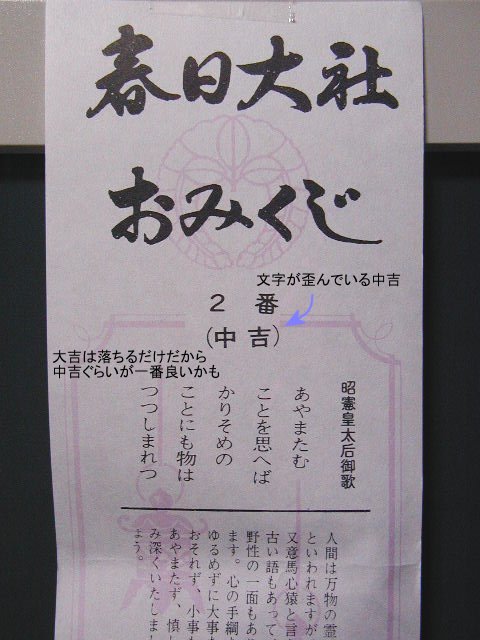 春日大社
おみくじ
文字が歪んでいる中吉
2番
(中吉)
大吉は落ちるだけだから
中吉ぐらいが一番良いかも
昭憲皇太后御歌
あやまたむ
ことを思へば
かりそめの
ことにも物は
つつしまれつ
人間は万物の霊
といわれますが
又意馬心猿と言
古い語もあって
野性の一面もあ
ます。心の手綱
ゆるめずに大事
おそれず、小事
あやまたず、慎
み深くいたしま
ょう。